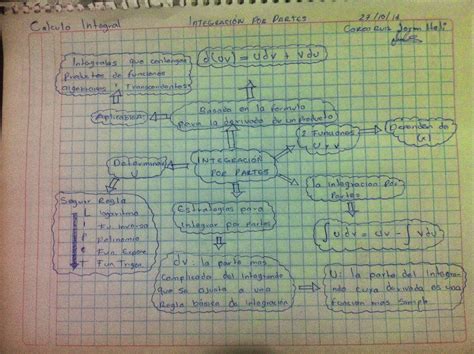 Calculo Integral
INTEGRACIÓN POR PARTES
27/10/16
Integrales que contengan
Productos de funciones
algebraicas y transcendentes
d(uv) = udv + vdu
Aplicación
Basada en la formula
para la derivada de un producto
2 Funciones
u y v
Dependen de
(x)
Determinar
INTEGRACIÓN
POR PARTES
La integracion por
Partes
Seguir Regla
L logaritmo
I Fu. Inversa
P Polinomio
E Fun. Expone
T Fun Trigon
Estrategias para
Integrar por partes
∫udv = uv - ∫vdu
dv: la parte mas
Complicada del Integrando
que se ajusta a una
Regla básica de integración
U: la parte del Integran
ndo cuya derivada es una
funcion mas simple